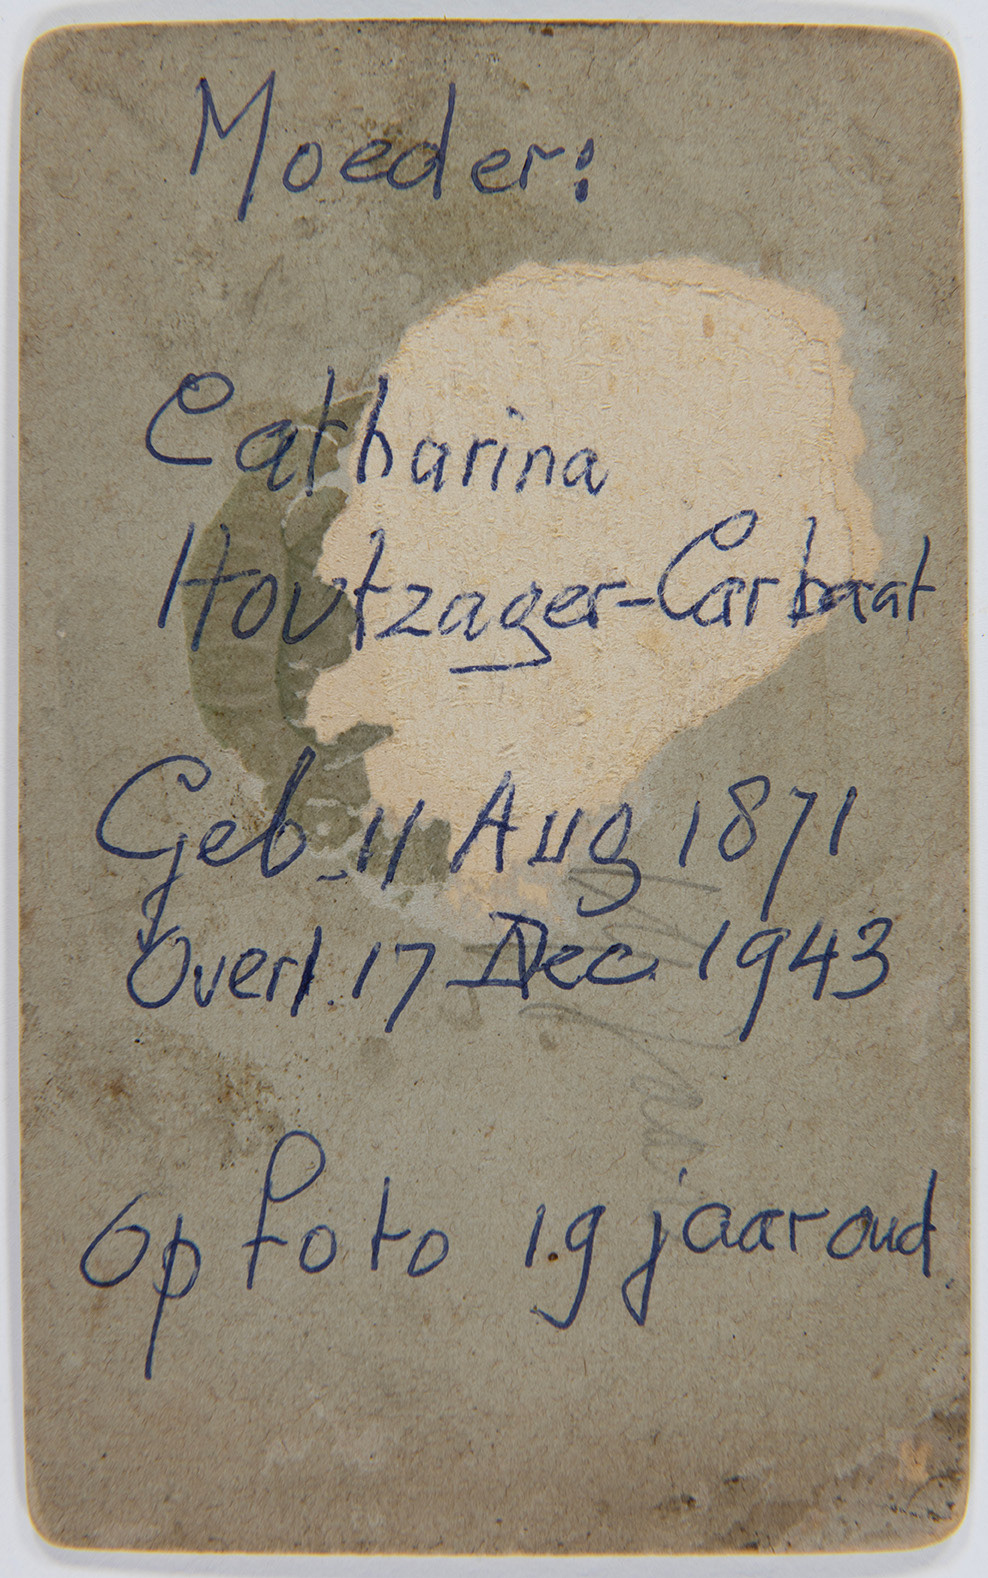 Moeder:
Catharina
Houtzager-Carbaat
Geb. 11 Aug 1871
Overl. 17 Dec 1943
op foto 19 jaar oud.